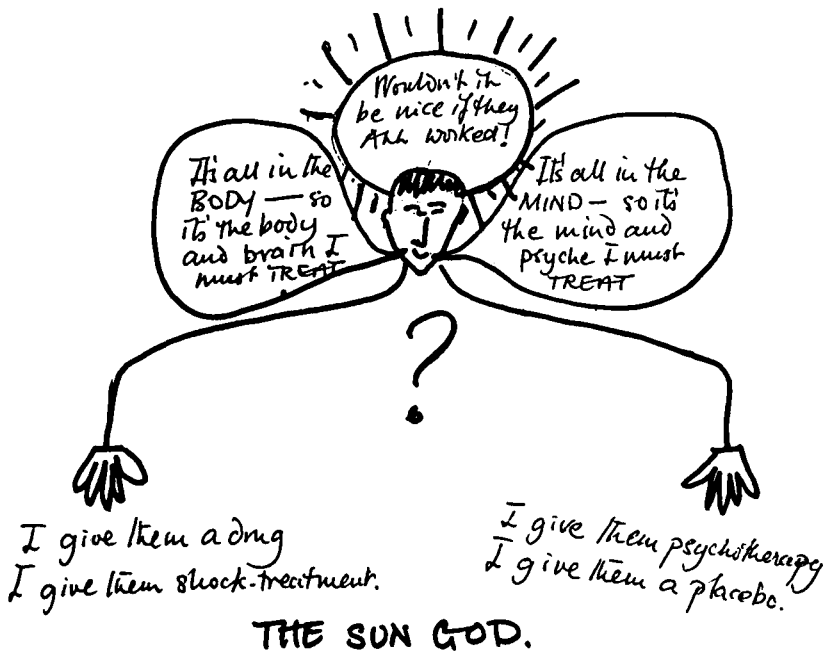 Wouldn't it
be nice if they
ALL worked!
It's all in the
BODY — so
it's the body
and brain I
must TREAT
It's all in the
MIND — so it's
the mind and
psyche I must
TREAT
?
I give them a drug
I give them shock-treatment.
I give them psychotherapy
I give them a placebo.
THE SUN GOD.